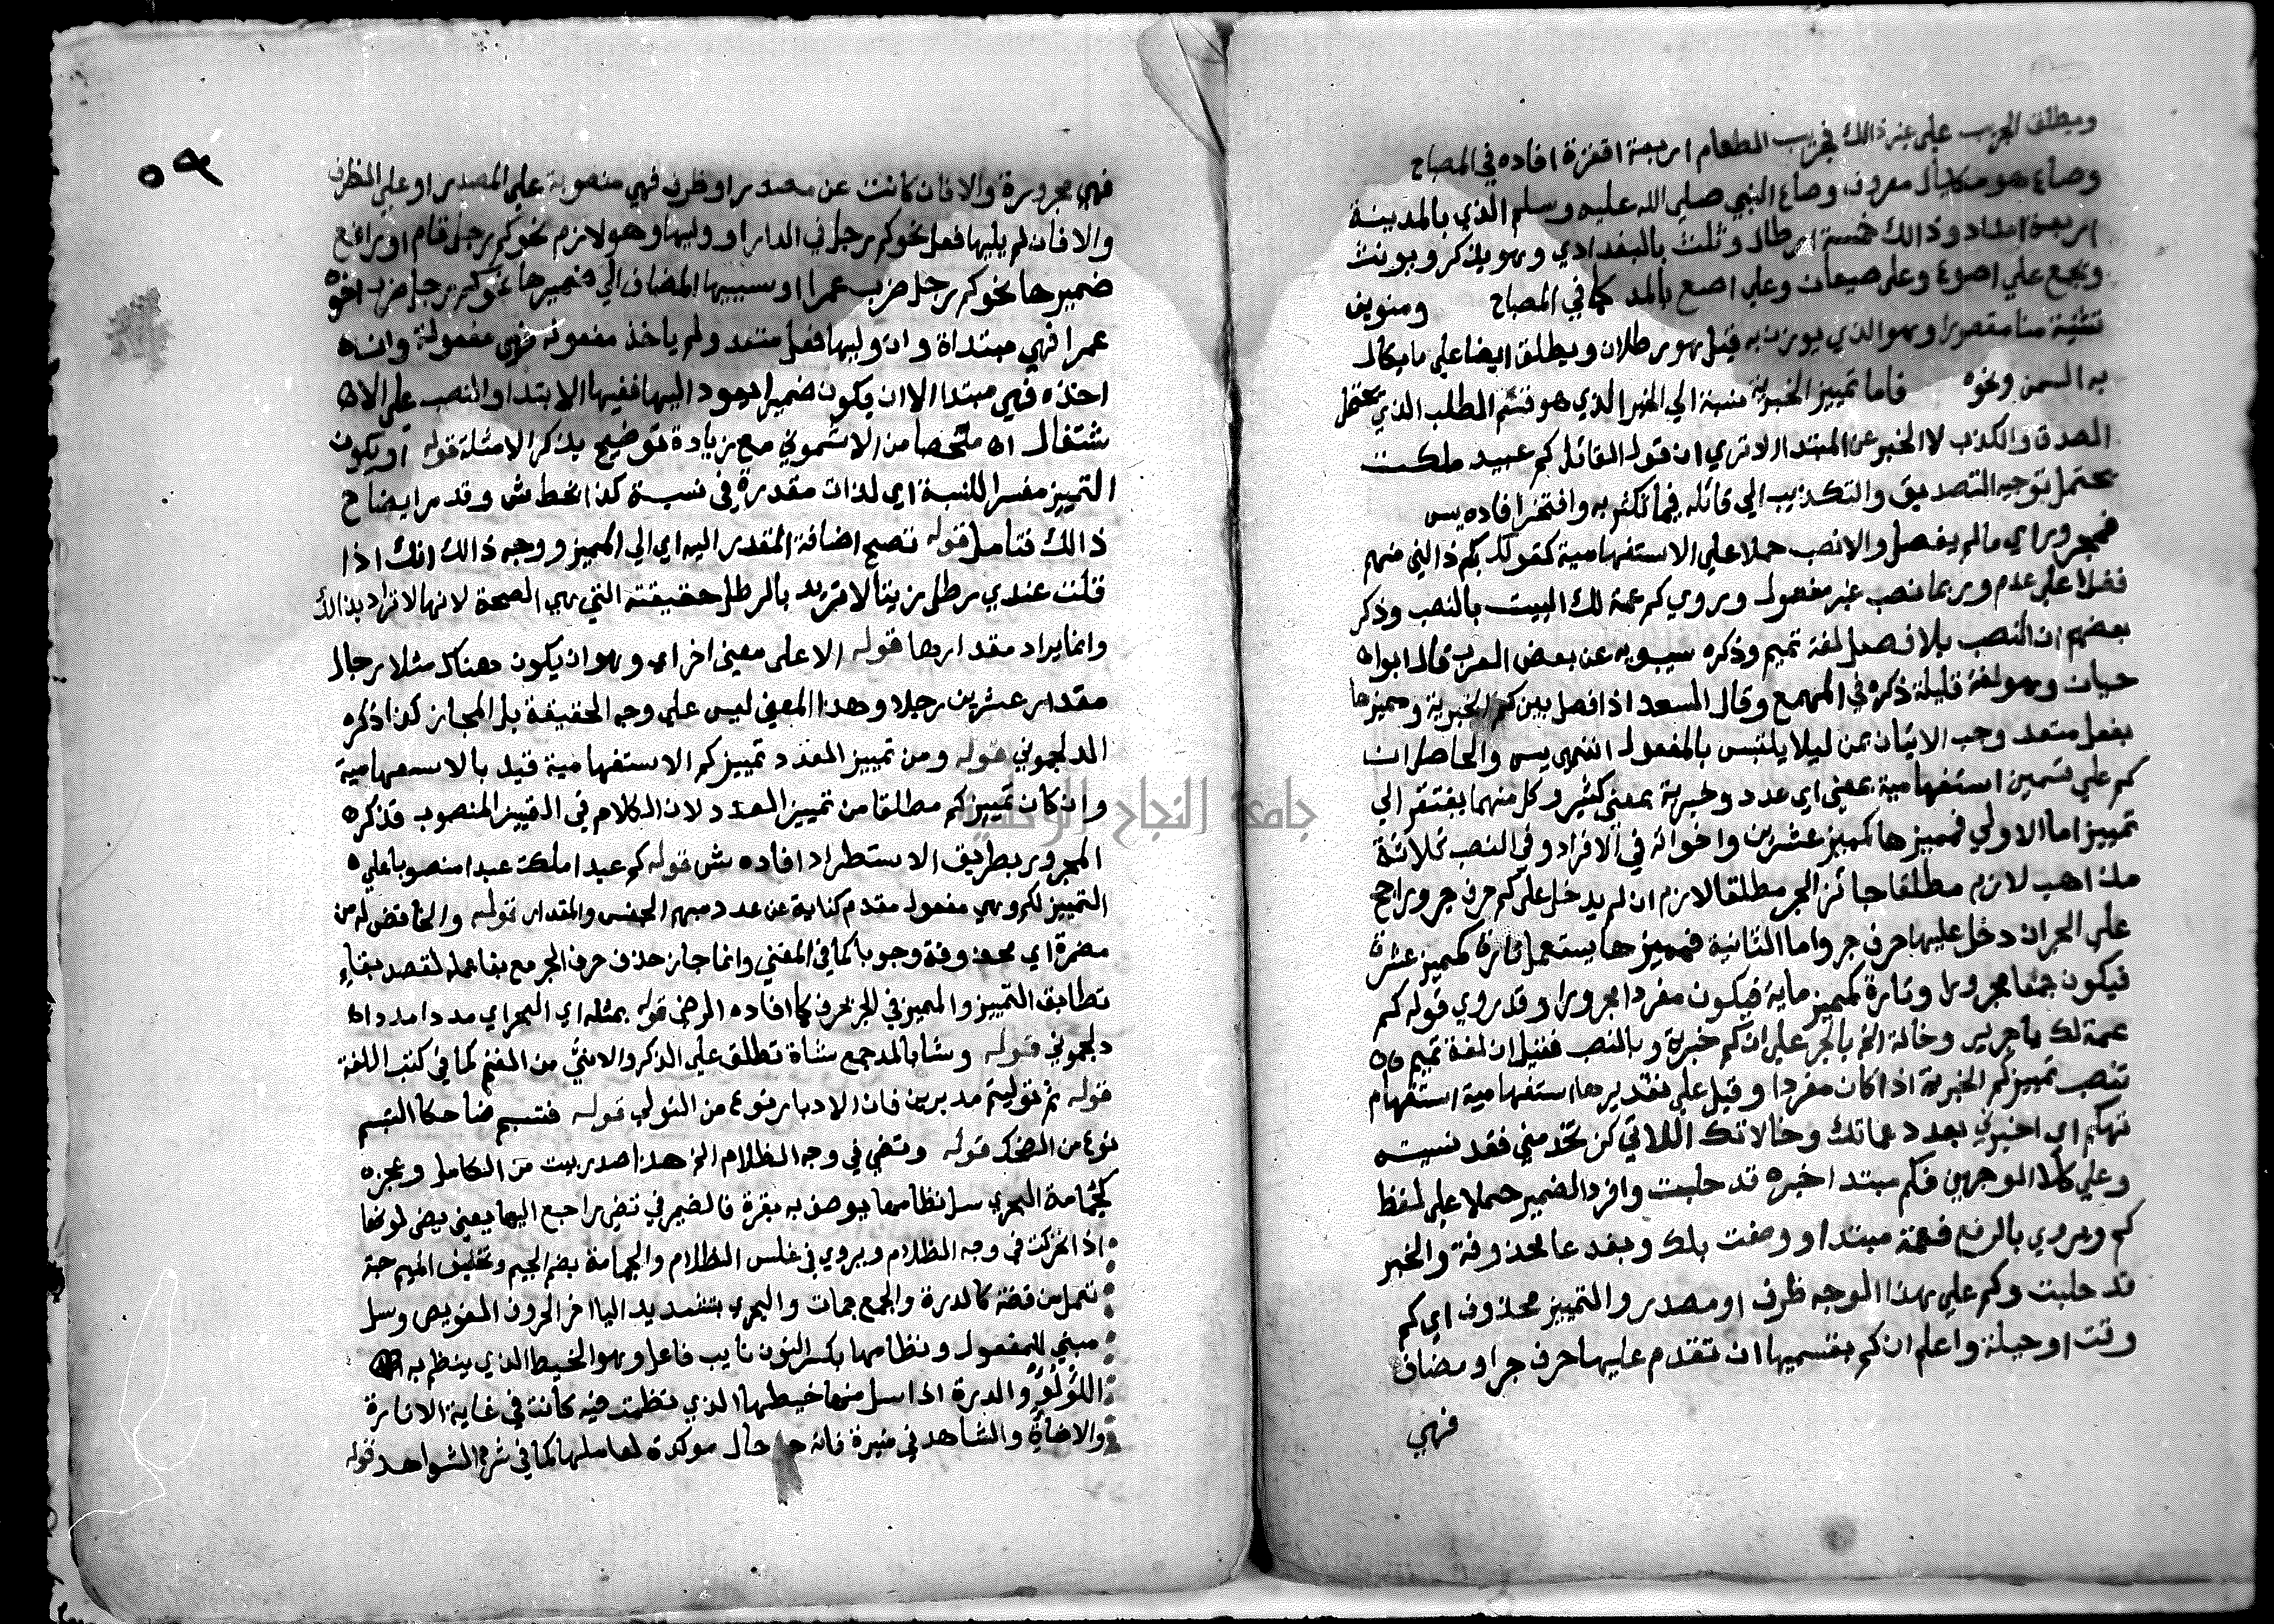 ويطلق الجريب على غير ذالك فجريب الطعام اربعة اقفزة افاده في المصباح
وصاع هو مكيال معروف وصاع النبي صلى الله عليه وسلم الذي بالمدينة
اربعة امداد وذالك خمسة ارطال وثلث بالبغدادي وهو يذكر ويونث
ويجمع علي اصوع وعلى صيعان وعلى اصع بالمد كما في المصباح ومنوين
تثنية منا مقصورا وهو الذي يوزن به قيل هو رطلان ويطلق ايضا علي ما يكال
به السمن ونحوه فاما تمييز الخبرية نسبة الي الخبر الذي هو قسم المطلب الذي يحتمل
الصدق والكذب لا الخبر عن المبتدا الا تري ان قول القائل كم عبيد ملكت
يحتمل توجيه التصديق والتكذيب الي قائله فيما تكثر به وافتخر افاده يس
فمجرور اي ما لم يفصل والا نصب حملا علي الاستفهامية كقولك كم نالني منهم
فضلا على عدم وربما نصب غير مفعول ويروي كم عمة لك البيت بالنصب وذكر
بعضهم ان النصب بلا فصل لغة تميم وذكره سيبويه عن بعض العرب قال ابو ا
حيان وهو لغة قليلة ذكره في الهمع وقال السعد اذا فصل بين كم الخبرية ومميزها
بفعل متعد وجب الاتيان بمن ليلا يلتبس بالمفعول انتهى يس والحاصل ان
كم علي قسمين استفهامية بمعنى اي عدد وخبرية بمعنى كثير وكل منهما يفتقر الي
تمييز اما الاولي فمميزها كمميز عشرين واخواته في الافراد وفي النصب ثلاثة
مذاهب لازم مطلقا جائز الجر مطلقا لازم ان لم يدخل على كم حرف جر وراجح
علي الجر ان دخل عليها حرف جر واما الثانية فمميزها يستعمل تارة كمميز عشرة
فيكون جمعا مجرورا وتارة كمميز ماية فيكون مفردا مجرورا وقد روي قوله كم
عمة لك يا جرير وخالة الخ بالجر على ان كم خبرية وبالنصب فقيل ان لغة تميم
تنصب تمييز كم الخبرية اذا كان مفردا وقيل علي تقديرها استفهامية استفهام
تهكم اي اخبرني بعدد عماتك وخالاتك اللاتي كن يخدمنني فقد نسيته
وعلي كلا الوجهين فكم مبتدا خبره قد حلبت وافرد الضمير حملا علي لفظ
كم ويروي بالرفع فعمة مبتدا ووصفت بلك وبفدعا محذوفة والخبر
قد حلبت وكم علي هذا الوجه ظرف او مصدر والتمييز محذوف اي كم
وقت او حبلة واعلم ان كم بقسميها ان تقدم عليها حرف جر او مضاف
فهي
٥٩
فهي مجرورة والا فان كانت عن مصدر او ظرف فهي منصوبة علي المصدر او علي الظرف
والا فان لم يليها فعل نحو كم رجل في الدار او وليها وهو لازم نحو كم رجل قام او رافع
ضميرها نحو كم رجل ضرب عمرا او سببيها المضاف الي ضميرها نحو كم رجل ضرب اخوه
عمرا فهي مبتداة وان وليها فعل متعد ولم ياخذ مفعوله فهي مفعولة وان
اخذه فهي مبتدا الا ان يكون ضميرا يعود اليها ففيها الابتدا والنصب علي الا
شتغال اه ملخصا من الاشموني مع زيادة توضيح بذكر الامثلة قوله او يكون
التمييز مفسرا للنسبة اي لذات مقدرة في نسبة كذا بخط ش وقد مر ايضاح
ذالك فتامل قوله تصح اضافة المقدر اليه اي الي المميز ووجه ذالك انك اذا
قلت عندي رطل زيتا لا تريد بالرطل حقيقته التي هي الصحة لانها لا تراد بذالك
وانما يراد مقدارها قوله الا على معنى اخر اي وهو ان يكون هناك مثلا رجال
مقدار عشرين رجلا وهذا المعنى ليس علي وجه الحقيقة بل المجاز كذا ذكره
الدلجموني قوله ومن تمييز العدد تمييز كم الاستفهامية قيد بالاستفهامية
وان كان تمييز كم مطلقا من تمييز العدد لان الكلام في التمييز المنصوب فذكره
المجرور بطريق الاستطراد افاده ش قوله كم عبدا ملكت عبدا منصوبا علي
التمييز لكم وهي مفعول مقدم كناية عن عدد مبهم الجنس والمقدار قوله والخافض له من
مضمرة اي محذوفة وجوبا كما في المغني وانما جاز حذف حرف الجر مع بقا عمله لقصد بقاء
تطابق التمييز والمميز في الجر بحرف كما افاده الرضي قوله بمثله اي البحر اي مددا مددا اه
دلجموني قوله وشا بالمد جمع شاة تطلق علي الذكر والانثى من الغنم كما في كتب اللغة
قوله ثم توليتم مدبرين فان الادبار نوع من التولي قوله فتبسم ضاحكا التبسم
نوع من الضحك قوله وتضي في وجه الظلام الخ هذا صدر بيت من الكامل وعجزه
كجمانة البحري سل نظامها يوصف به بقرة فالضمير في تضي راجع اليها يعني يضي لونها
اذا تحركت في وجه الظلام ويروي في غلس الظلام والجمانة بضم الجيم وتخفيف الميم حبة
تعمل من فضة كالدرة والجمع جمات والبحري بتشديد اليا اخر الحروف الغويص وسل
مبني للمفعول ونظامها بكسر النون نايب فاعل وهو الخيط الذي ينظم به
اللؤلؤ والدرة اذا سل منها خيطها الذي نظمت فيه كانت في غاية الانارة
والاضاة والشاهد في منيرة فانه حال موكدة لعاملها كما في شرح الشواهد قوله
جامعة النجاح الوطنية